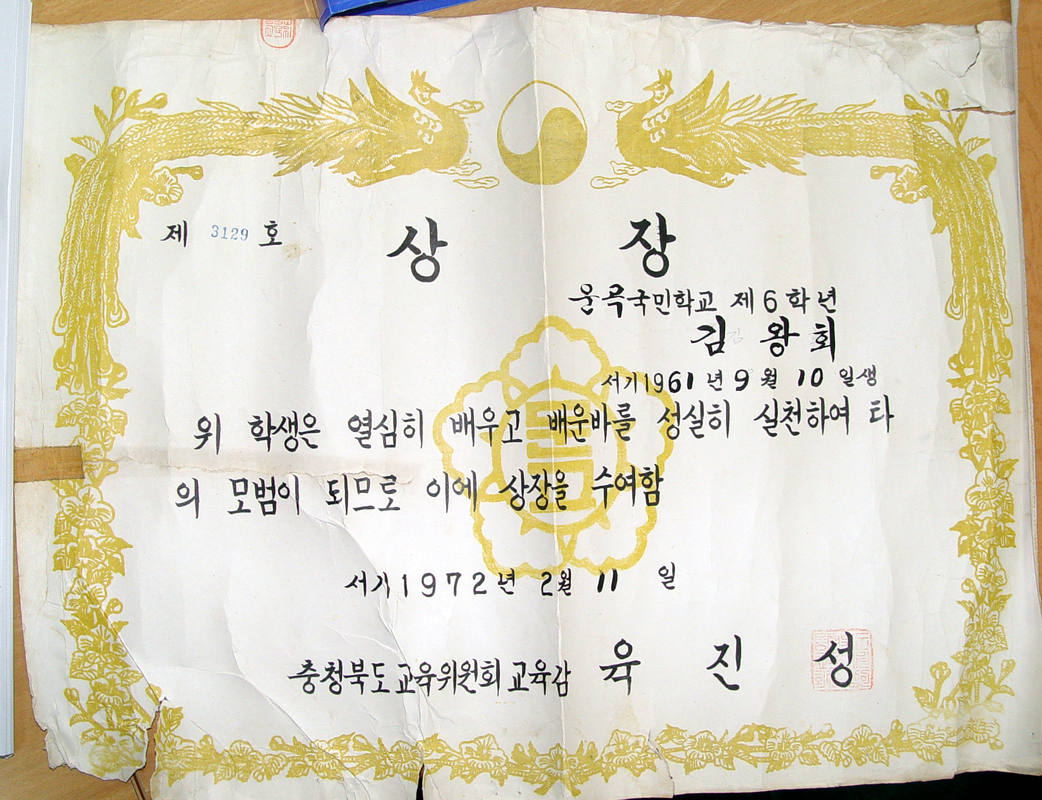 제 3129 호
상 장
운곡국민학교 제6학년
김 왕 회
서기1961년 9월 10일생
위 학생은 열심히 배우고 배운바를 성실히 실천하여 타
의 모범이 되므로 이에 상장을 수여함
서기1972년 2월 11일
충청북도교육위원회교육감 육 진 성